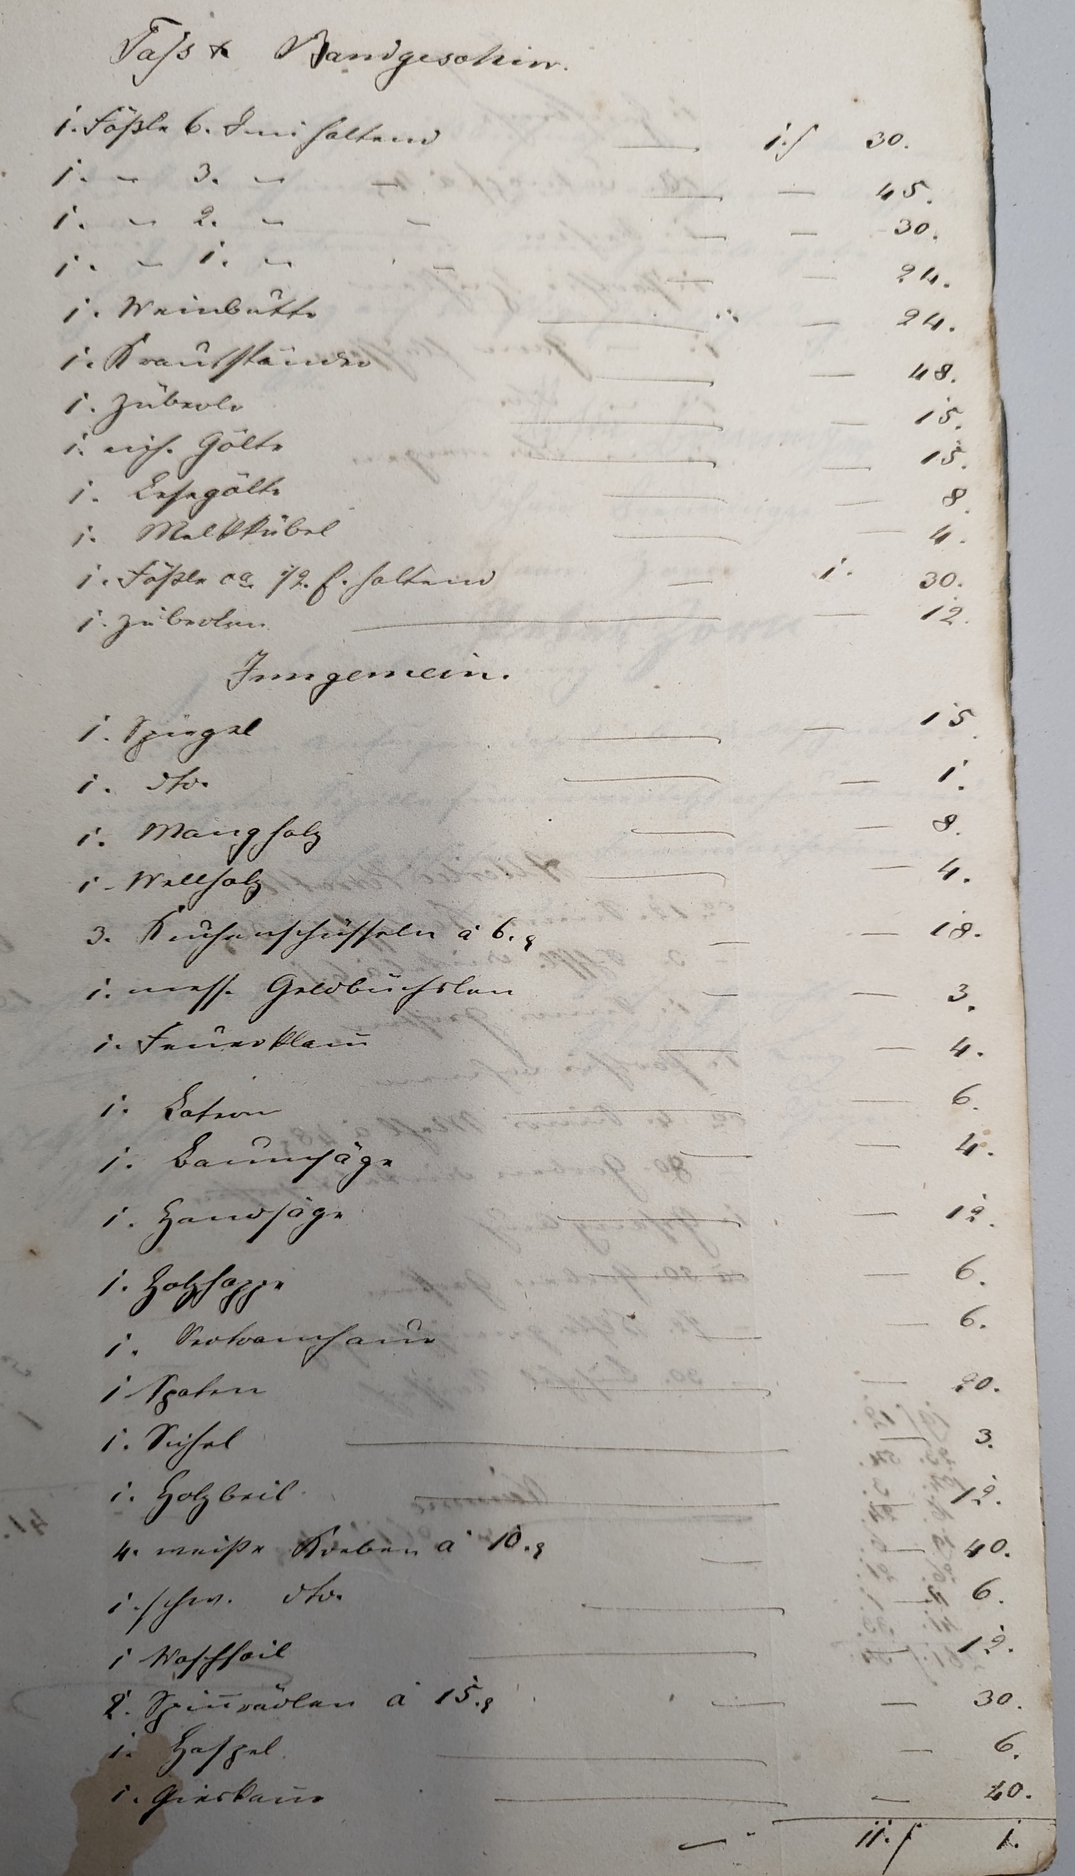 Faß & Bandgeschirr.
1. Fäßle 6. Imi haltend — 1. f 30.
1. " 3. " — — 45.
1. " 2. " — — 30.
1. " 1. " — — 24.
1. Weinbütte — — 24.
1. Krautstande — — 48.
1. Züberle — — 15.
1. aich. Gölte — — 15.
1. Lesegölte — — 8.
1. Melkkübel — — 4.
1. Fäßle ca. 1/2. f. haltend — 1. 30.
1. Züberlen — — 12.
Inngemein.
1. Spiegel — — 15.
1. dto. — — 1.
1. Mangholz — — 8.
1. Wellholz — — 4.
3. Kuchenschüsseln à 6. — — 18.
1. mess. Geldbüchslen — — 3.
1. Feuerklam̅ — — 4.
1. Latern — — 6.
1. Baumsäge — — 4.
1. Handsäge — — 12.
1. Holzhappe — — 6.
1. — — 6.
1 Spaten — — 20.
1. Sichel — — 3.
1. Holzbeil — — 12.
4. weiße Kreben à 10. — — 40.
1. schw. dto. — — 6.
1 Waschseil — — 12.
2. Spin̅rädlen à 15. — — 30.
1. Haspel — — 6.
1. Gieskan̅e — — 40.
— 11. f 1.